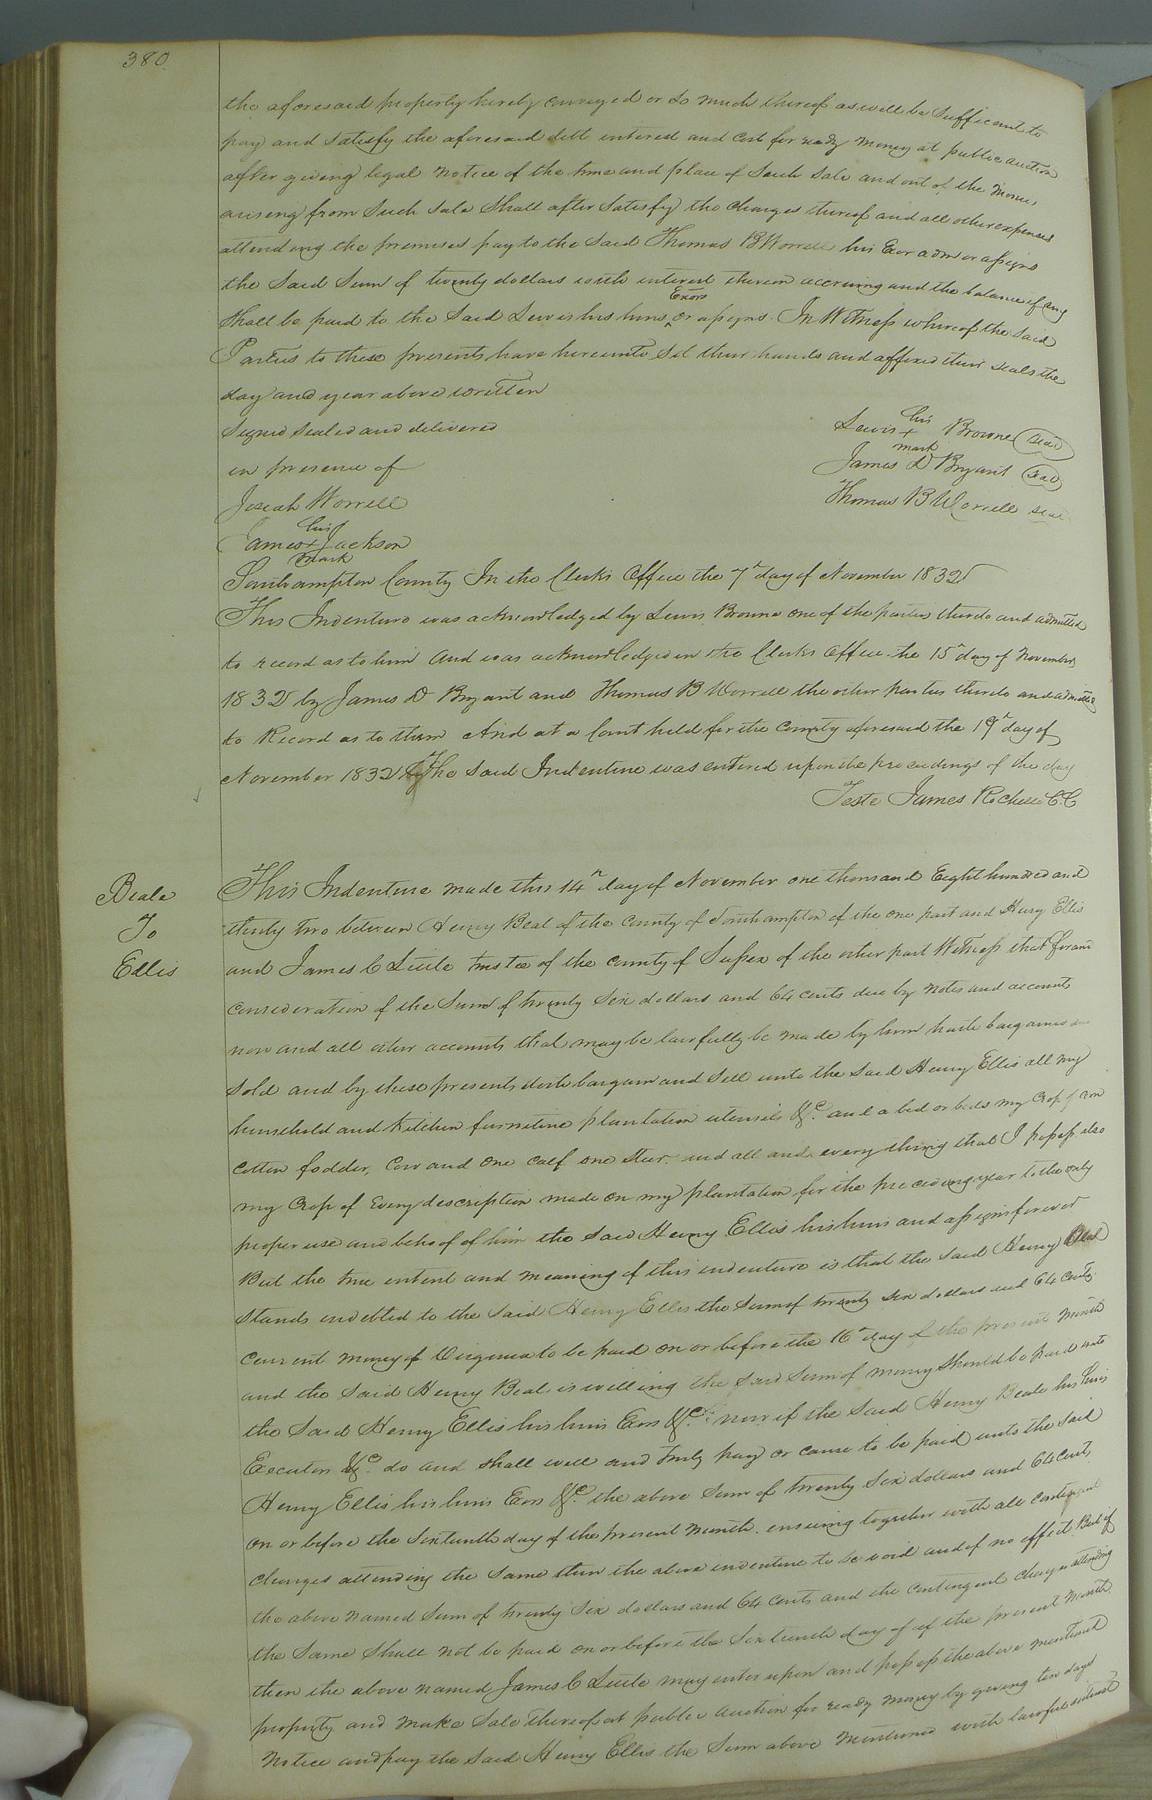 380
the aforesaid property hereby conveyed or so much thereof as will be sufficient to
pay and satisfy the aforesaid debt interest and cost for ready money at public auction
after giving legal notice of the time and place of such sale and out of the monies
arising from such sale shall after satisfy the charges thereof and all other expenses
attending the premises pay to the said Thomas B Worrell his Exor adm or assigns
the said sum of twenty dollars with interest thereon accruing and the balance if any
shall be paid to the said Lewis his heirs Exors or assigns. In Witness whereof the said
Parties to these presents have hereunto set their hands and affixed their seals the
day and year above written
Signed sealed and delivered
in presence of
Josiah Worrell
James his + mark Jackson
Lewis his + mark Browne seal
James D Bryant seal
Thomas B Worrell seal
Southampton County In the Clerks Office the 7th day of November 1832
This Indenture was acknowledged by Lewis Browne one of the parties thereto and admitted
to record as to him And was acknowledged in the Clerks Office the 15th day of November
1832 by James D Bryant and Thomas B Worrell the other parties thereto and admitted
to Record as to them And at a Court held for the County aforesaid the 19th day of
November 1832 The said Indenture was entered upon the proceedings of the day
Teste James Rochelle C.C
Beale
To
Ellis
This Indenture made this 14th day of November one thousand Eight hundred and
thirty two between Henry Beal of the County of Southampton of the one part and Henry Ellis
and James C Little trustee of the county of Sussex of the other part Witness that for and
consideration of the sum of twenty six dollars and 64 cents due by notes and accounts
now and all other accounts that may be lawfully be made by him hath bargained and
sold and by these presents doth bargain and sell unto the said Henry Ellis all my
household and kitchen furniture plantation utensils &c. and a bed or beds my Crop of corn
cotton fodder, Cow and one calf one steer and all and every thing that I possess also
my crop of every description made on my plantation for the preceding year to the only
proper use and behoof of him the said Henry Ellis his heirs and assigns forever
But the true intent and meaning of this indenture is that the said Henry Beal
stands indebted to the said Henry Ellis the sum of twenty six dollars and 64 cents
current money of Virginia to be paid on or before the 16th day of the present month
and the said Henry Beal is willing the said sum of money should be paid unto
the said Henry Ellis his heirs Exors &c. now if the said Henry Beale his heirs
Executors &c. do and shall well and truly pay or cause to be paid unto the said
Henry Ellis his heirs Exors &c the above sum of twenty six dollars and 64 cents
on or before the sixteenth day of the present month ensuing together with all contingent
charges attending the same then the above indenture to be void and of no effect But if
the above named sum of twenty six dollars and 64 cents and the contingent charges attending
the same shall not be paid on or before the sixteenth day of of the present month
then the above named James C Little may enter upon and possess the above mentioned
property and make sale thereof at public auction for ready money by giving ten days
notice and pay the said Henry Ellis the sum above mentioned with lawful interest